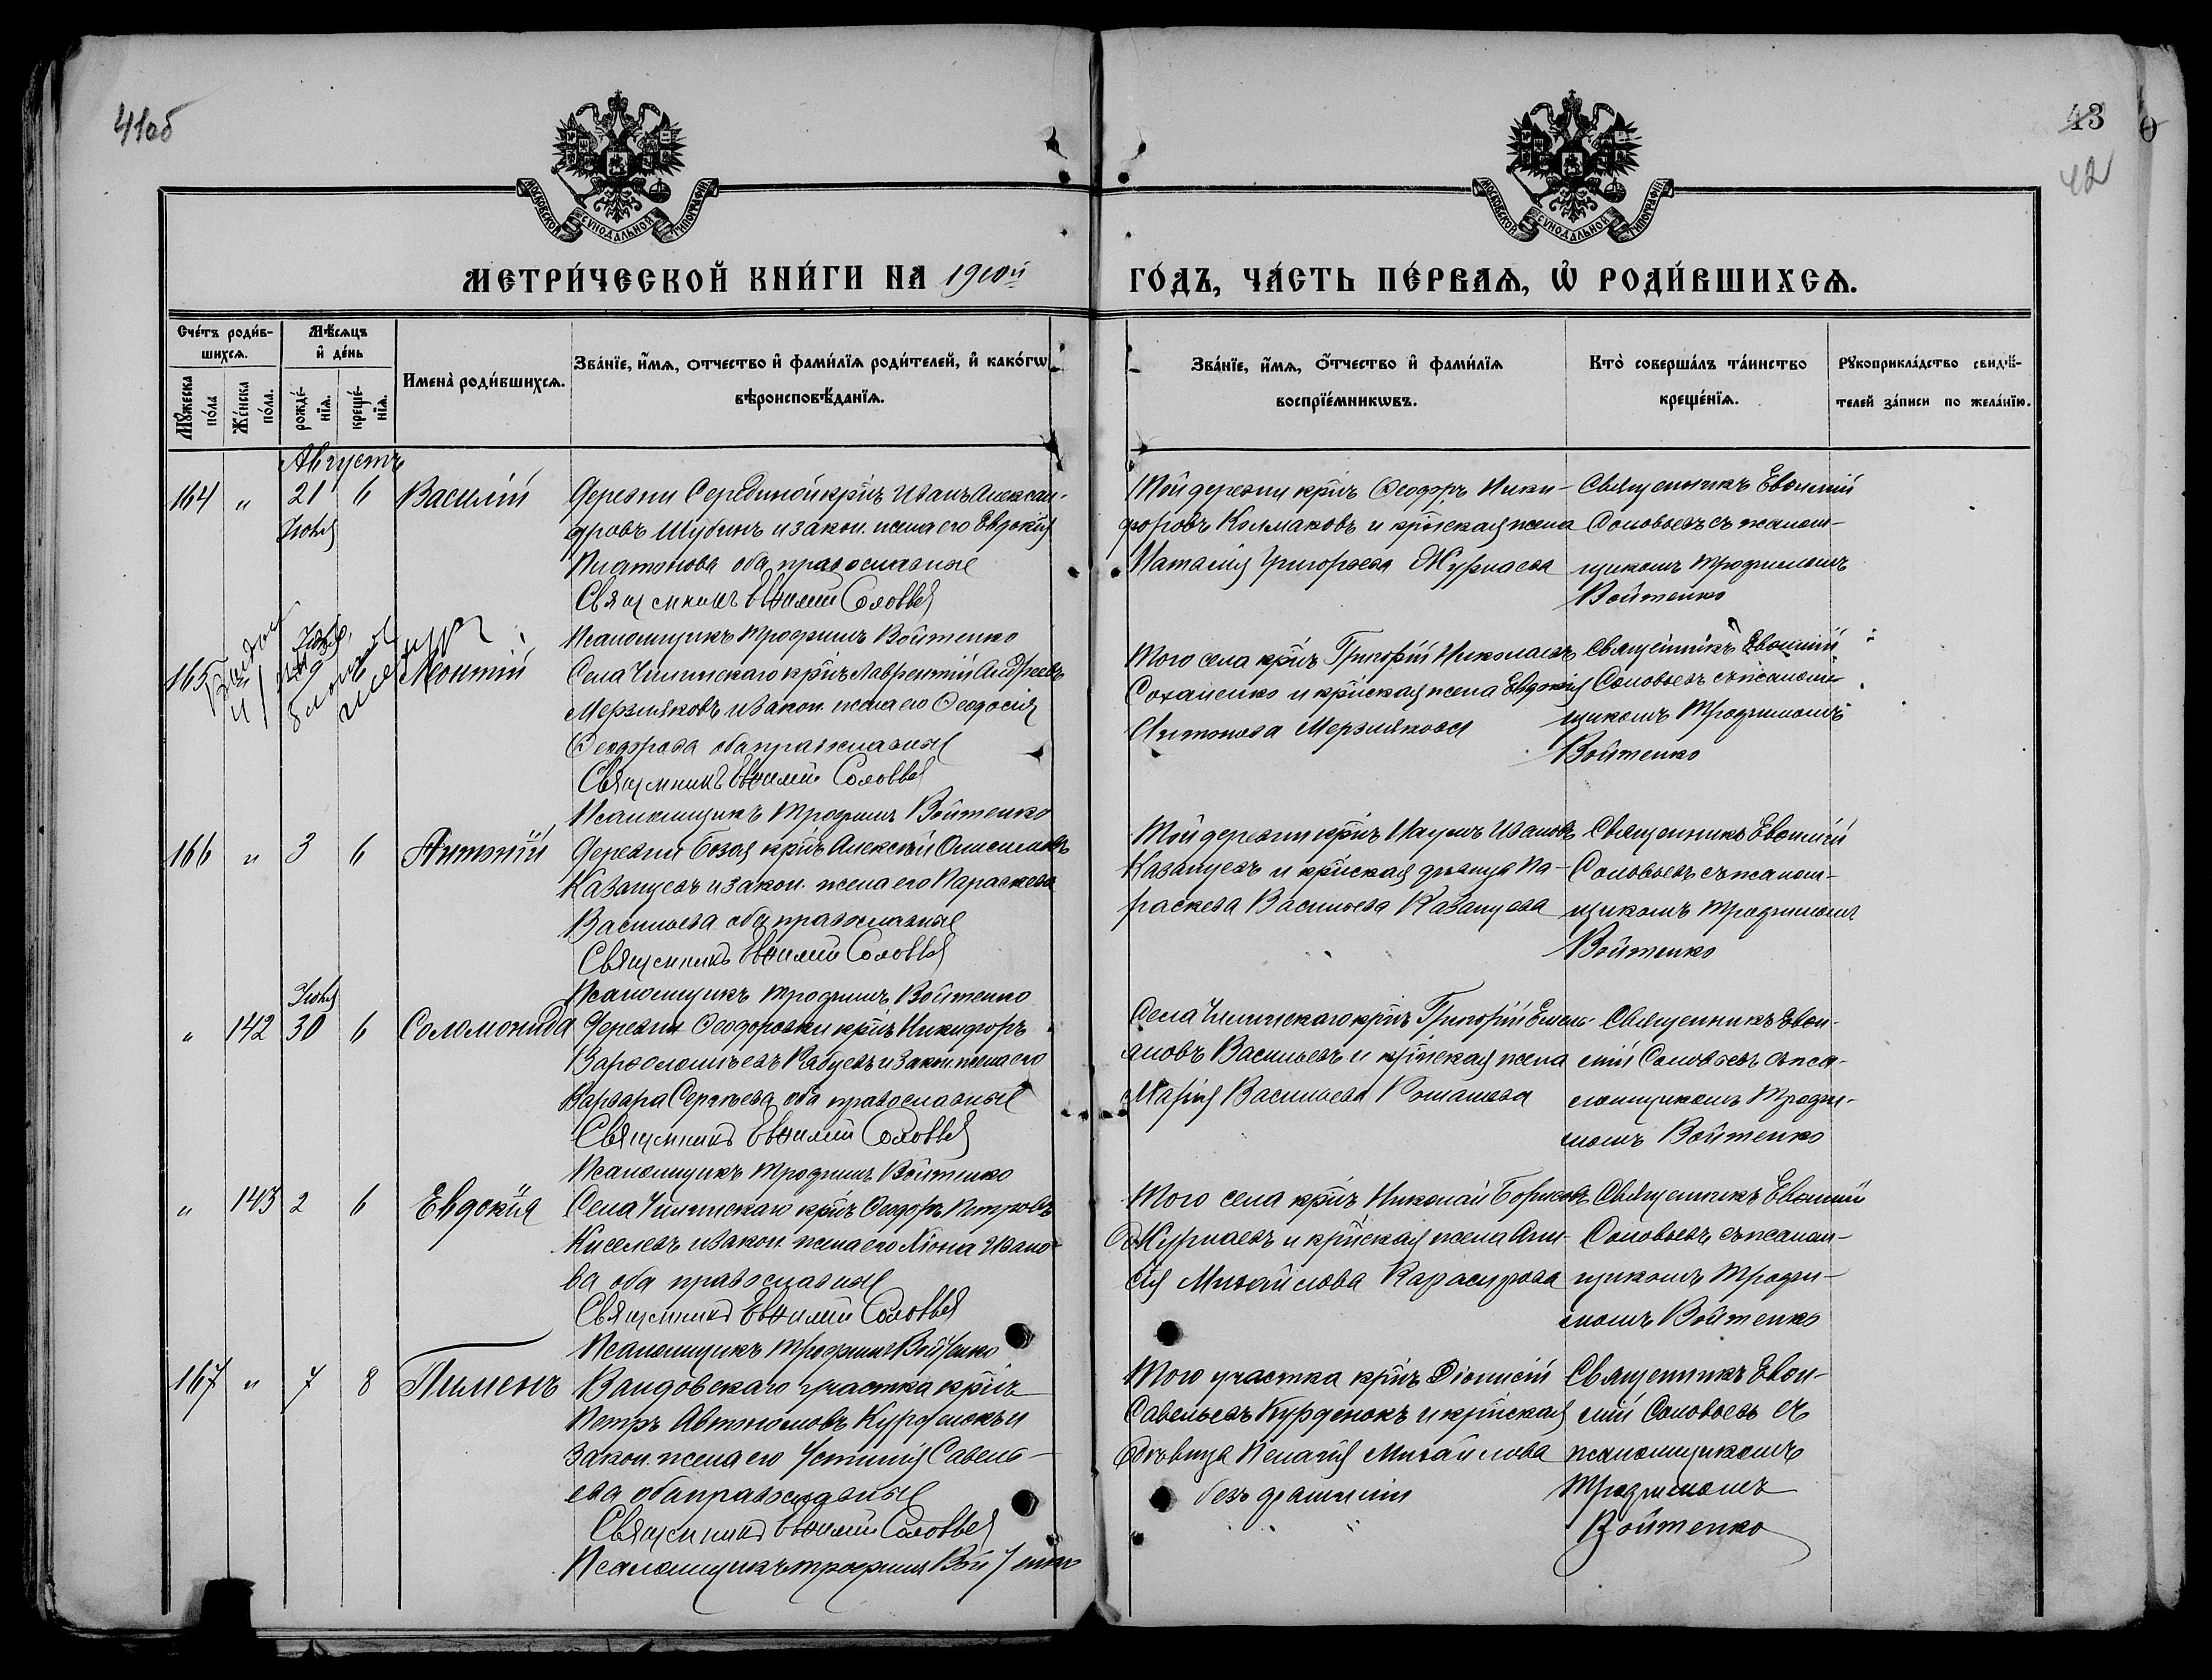 41об
43
42
МОСКОВСКОЙ СѴНОДАЛЬНОЙ ТИПОГРАФІИ
МОСКОВСКОЙ СѴНОДАЛЬНОЙ ТИПОГРАФІИ
МЕТРИ́ЧЕСКОЙ КНИ́ГИ НА 1910й
ГО́ДЪ, ЧА́СТЬ ПЕ́РВАѦ, Ѡ҆ РОДИ́ВШИХСѦ.
Сче́тъ роди́в-
шихсѧ.
Мꙋ́жеска
по́ла
Же́нска
по́ла.
Мѣ́сѧцъ
и҆ де́нь
рожде́-
нїѧ.
креще́-
нїѧ.
Имена̀ роди́вшихсѧ.
Зва́нїе, и҆́мѧ, ѻ҆́тчество и҆ фами́лїѧ роди́телей, и҆ како́гѡ
вѣроисповѣ́данїѧ.
Зва́нїе, и҆́мѧ, ѻ҆́тчество и҆ фами́лїѧ
воспрїе́мникѡвъ.
Кто̀ соверша́лъ та́инство
креще́нїѧ.
Рꙋкоприкла́дство свидѣ́-
телей за́писи по жела́нїю.
Августъ
164 " 21 6 Василій
Іюля
Деревни Серебиной кр͠нъ Иванъ Алексан-
дровъ Шубинъ и закон. жена его Евдокія
Платонова оба православные
Священникъ Евѳимій Соловьев
Псаломщикъ Трофимъ Войтенко
Той деревни кр͠нъ Ѳеодоръ Ники-
форовъ Колмаковъ и кр͠нская жена
Наталія Григорьева Журнаева
Священникъ Евѳимій
Соловьевъ съ псалом-
щикомъ Трофимомъ
Войтенко
165 " 6 Леонтій
Села Чилинскаго кр͠нъ Лаврентій Андреевъ
Мерзляковъ и закон. жена его Ѳеодосія
Ѳеодорова оба православные
Священникъ Евѳимій Соловьев
Псаломщикъ Трофимъ Войтенко
Того села кр͠нъ Григорій Николаевъ
Соханенко и кр͠нская жена Евдокія
Антонова Мерзлякова
Священникъ Евѳимій
Соловьевъ съ псалом-
щикомъ Трофимомъ
Войтенко
166 " 3 6 Антоній
Деревни Базой кр͠нъ Алексѣй Онисимовъ
Казанцевъ и закон. жена его Параскева
Васильева оба православные
Священникъ Евѳимій Соловьев
Псаломщикъ Трофимъ Войтенко
Той деревни кр͠нъ Наумъ Ивановъ
Казанцевъ и кр͠нская дѣвица Па-
раскева Васильева Казанцева
Священникъ Евѳимій
Соловьевъ съ псалом-
щикомъ Трофимомъ
Войтенко
Іюля
" 142 30 6 Соломонида
Деревни Ѳеодоровки кр͠нъ Никифоръ
Варѳоломѣевъ Рабцевъ и закон. жена его
Варвара Сергѣева оба православные
Священникъ Евѳимій Соловьев
Псаломщикъ Трофимъ Войтенко
Села Чилинскаго кр͠нъ Григорій Емель-
яновъ Васильевъ и кр͠нская жена
Марія Васильева Ромашева
Священникъ Евѳи-
мій Соловьевъ съ пса-
ломщикомъ Трофи-
момъ Войтенко
" 143 2 6 Евдокія
Села Чилинскаго кр͠нъ Ѳеодоръ Петровъ
Киселевъ и закон. жена его Хіона Ивано-
ва оба православные
Священникъ Евѳимій Соловьев
Псаломщикъ Трофимъ Войтенко
Того села кр͠нъ Николай Борисовъ
Журнаевъ и кр͠нская жена Ани-
сія Михайлова
Священникъ Евѳимій
Соловьевъ съ псалом-
щикомъ Трофи-
момъ Войтенко
167 " 7 8 Пименъ
Вандовскаго участка кр͠нъ
Петръ Автономовъ Курденокъ и
закон. жена его Устинія Савель-
ева оба православные
Священникъ Евѳимій Соловьев
Псаломщикъ Трофимъ Войтенко
Того участка кр͠нъ Діонисій
Савельевъ Курденокъ и кр͠нская
дѣвица Пелагія Михайлова
безъ фамиліи
Священникъ Евѳи-
мій Соловьевъ съ
псаломщикомъ
Трофимомъ
Войтенко